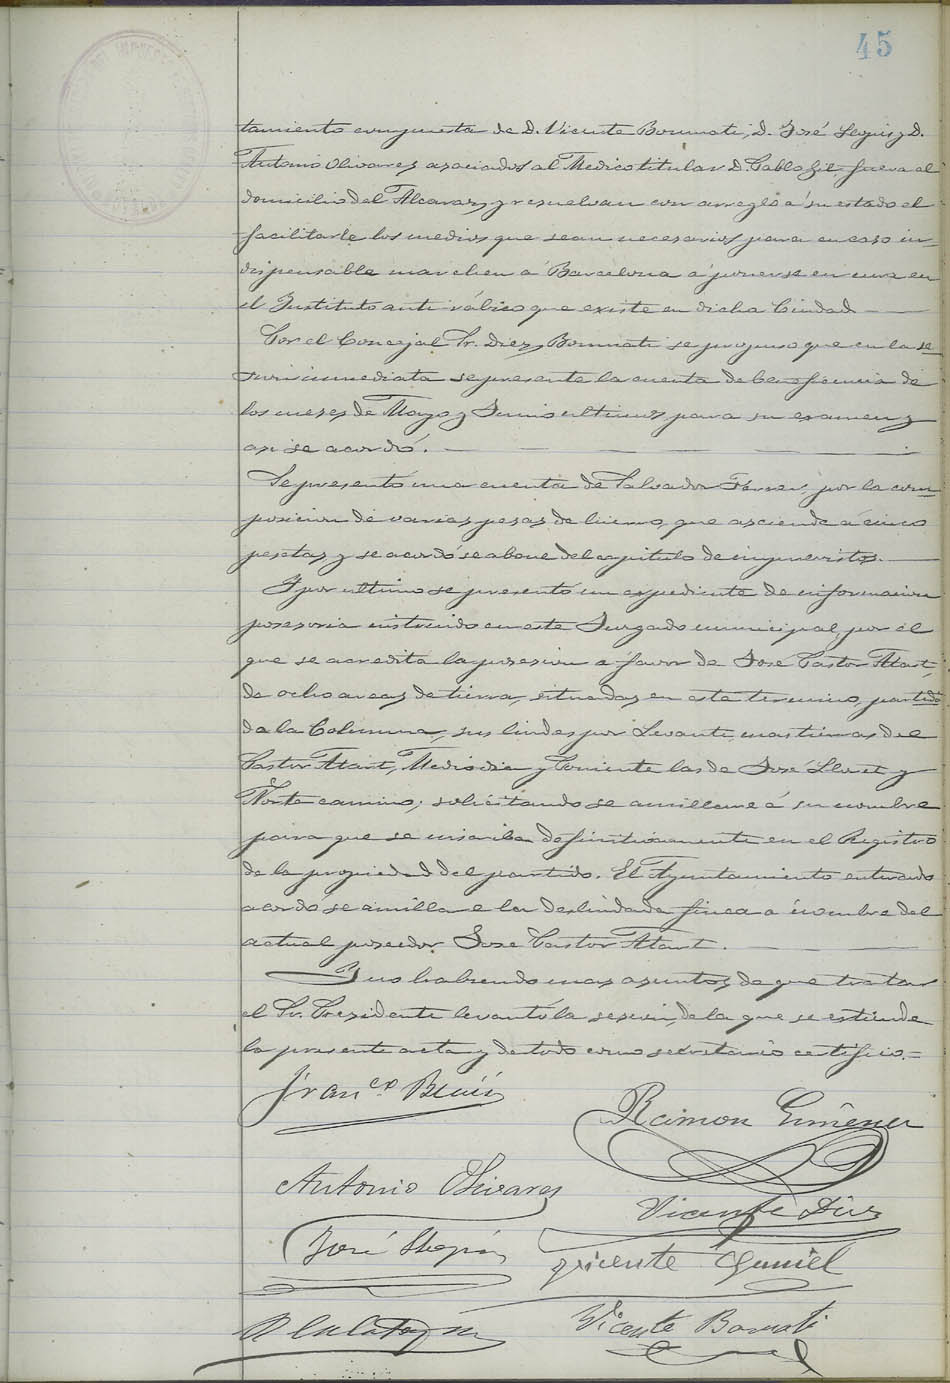 45
tamiento compuesta de D. Vicente Boronati, D. José Llopis y D.
Antonio Olivares asociados al Medico titular D. Pablo Gil, fuera al
domicilio del Alcaraz, y resuelvan con arreglo á su estado el
facilitarle los medios que sean necesarios para en caso in-
dispensable marchen á Barcelona á ponerse en cura en
el Instituto anti-rábico que existe en dicha Ciudad
Por el Concejal Sr. Diez Boronati se propuso que en la se-
sion inmediata se presente la cuenta de beneficencia de
los meses de Mayo y Junio ultimos para su examen y
asi se acordó.
Se presentó una cuenta de Salvador Ferrer, por la com-
posicion de varias pesas de hierro, que asciende á cinco
pesetas y se acordó se abone del capitulo de imprevistos.
Y por ultimo se presentó un expediente de informacion
posesoria instruido en este Juzgado municipal, por el
que se acredita la posesion a favor de José Pastor Atart,
de ocho areas de tierra, situadas en este termino, partida
de la Columna, sus lindes por Levante, mas tierras del
Pastor Atart, Mediodia y Poniente las de José Lloret y
Norte camino; solicitando se amillare á su nombre
para que se inscriba definitivamente en el Registro
de la propiedad del partido. El Ayuntamiento enterado
acordó se amillare la deslindada finca a nombre del
actual poseedor Jose Pastor Atart.
Y no habiendo mas asuntos de que tratar
el Sr. Presidente levantó la sesion, de la que se estiende
la presente acta y de todo como secretario certifico.=
Franco
Ramon Gimenez
Antonio Olivares
Vicente Diez
José Llopis
Vicente
Vicente Boronati